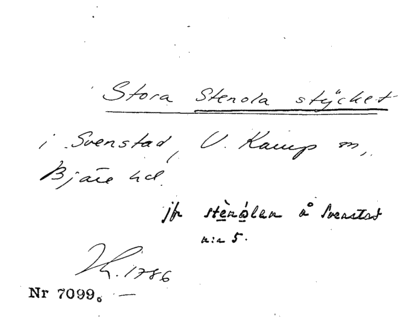 Stora Stenola stycket
i Svenstad, V. Karup sn,
Bjäre hd.
jfr stènólan å Svenstad
n:r 5.
Lh. 1786
Nr 7099.